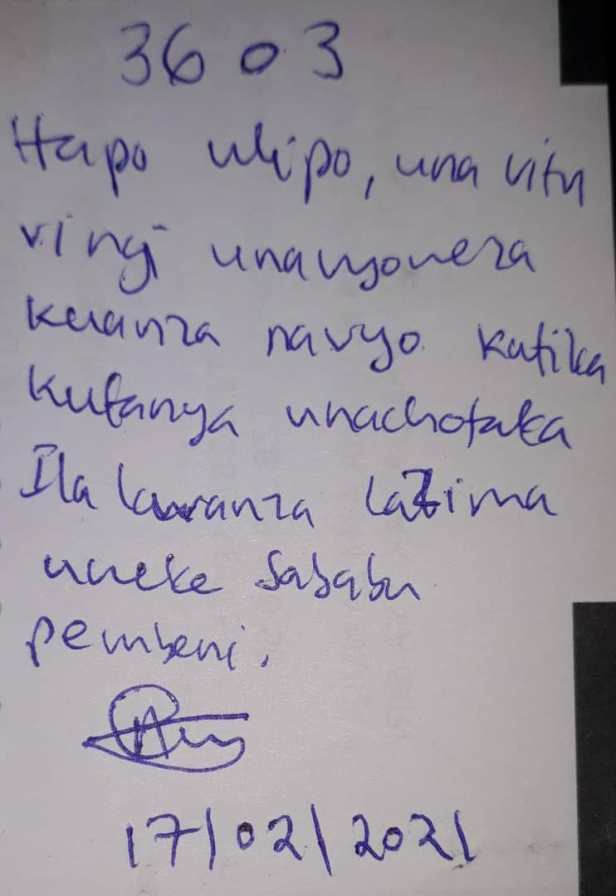 3603
Hapo ulipo, una vitu
vingi unavyoweza
kuanza navyo katika
kufanya unachotaka
Ila kwanza lazima
uweke sababu
pembeni.
17/02/2021